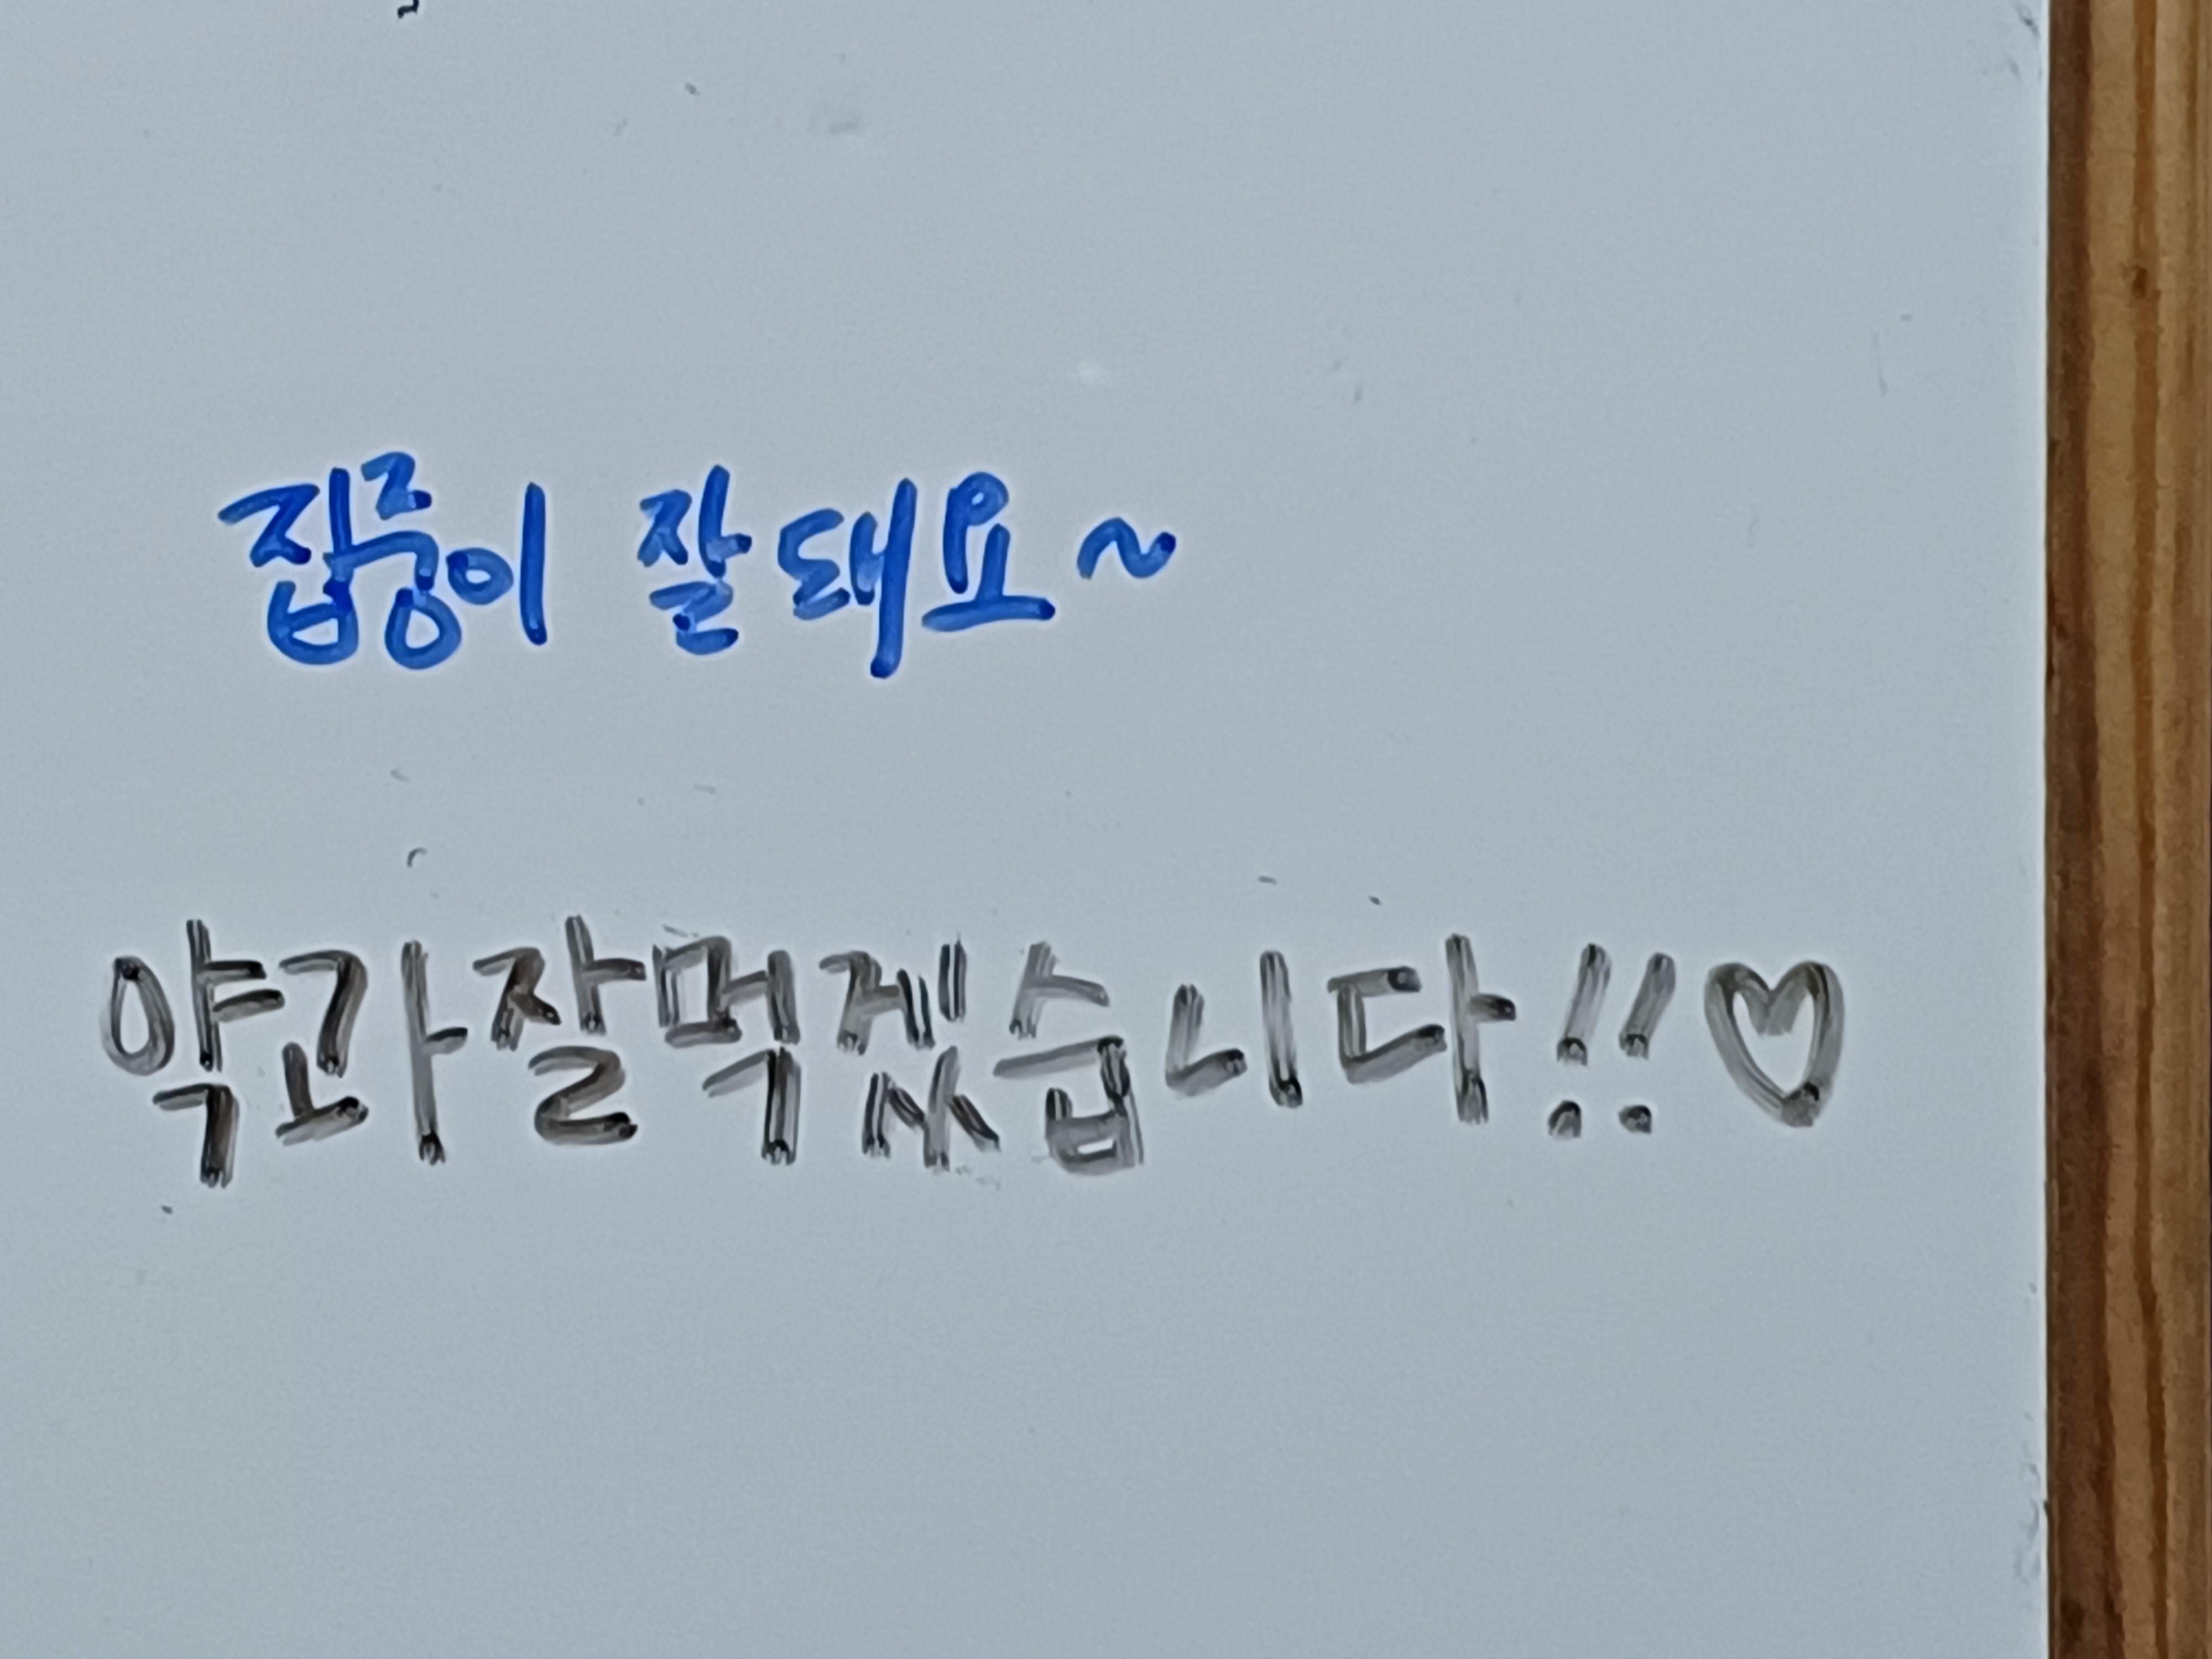 집중이 잘돼요~
약과잘먹겠습니다!!♡